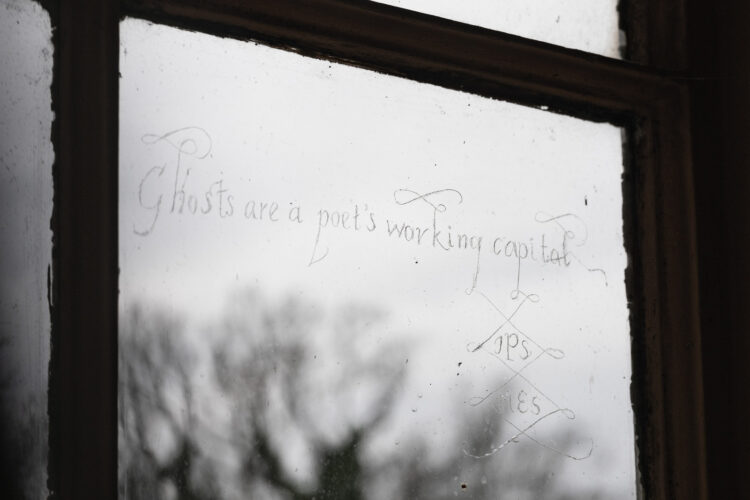 Ghosts are a poet's working capital
JPS
MES